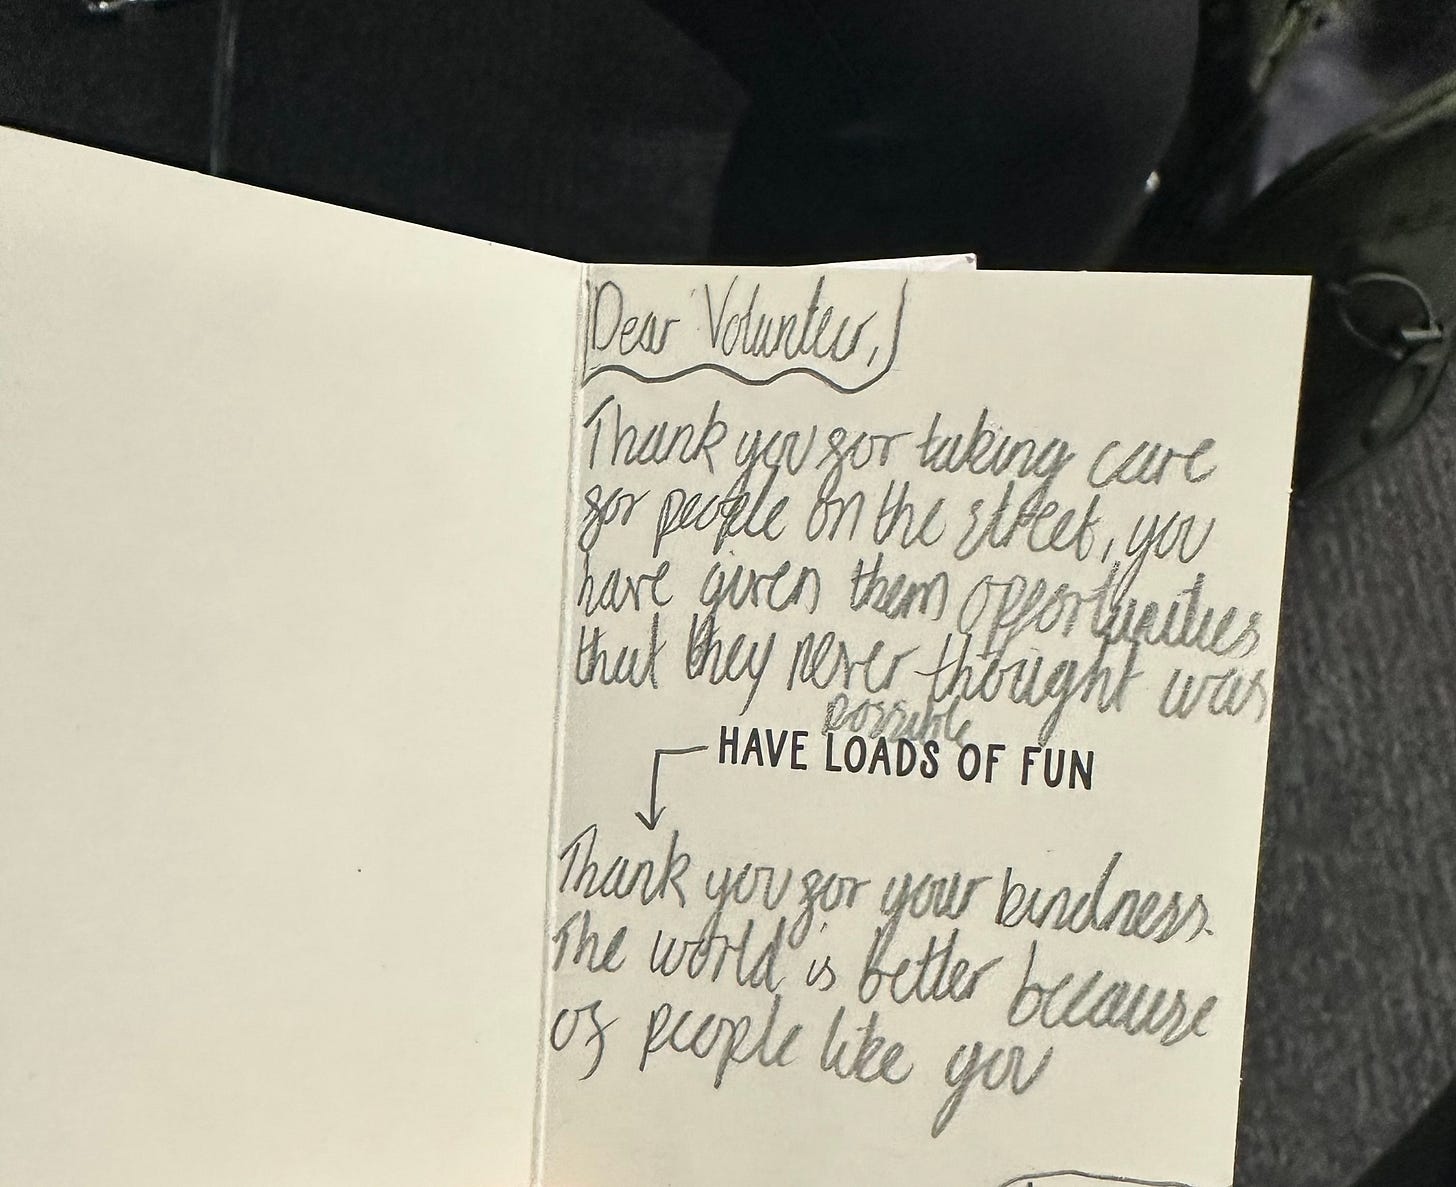 Dear Volunteer,
Thank you for taking care
for people on the street, you
have given them opportunities
that they never thought was
possible
HAVE LOADS OF FUN
Thank you for your kindness.
The world is better because
of people like you